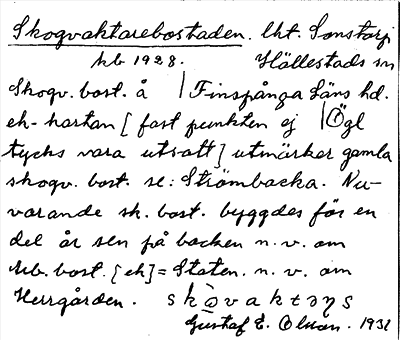 Skogvaktarebostaden. lht. Sonstorp
hb 1928. Hällestads sn
Skogv. bost. å Finspånga Läns hd.
ek-kartan [fast punkten ej Ögl
tycks vara utsatt] utmärker gamla
skogv. bost. se: Strömbacka. Nu-
varande sk. bost. byggdes för en
del år sen på backen n. v. om
Arb. bost. [ek] = Staten. n. v. om
Herrgården. skωvaktəŋs
Gustaf E. Olsson. 1932